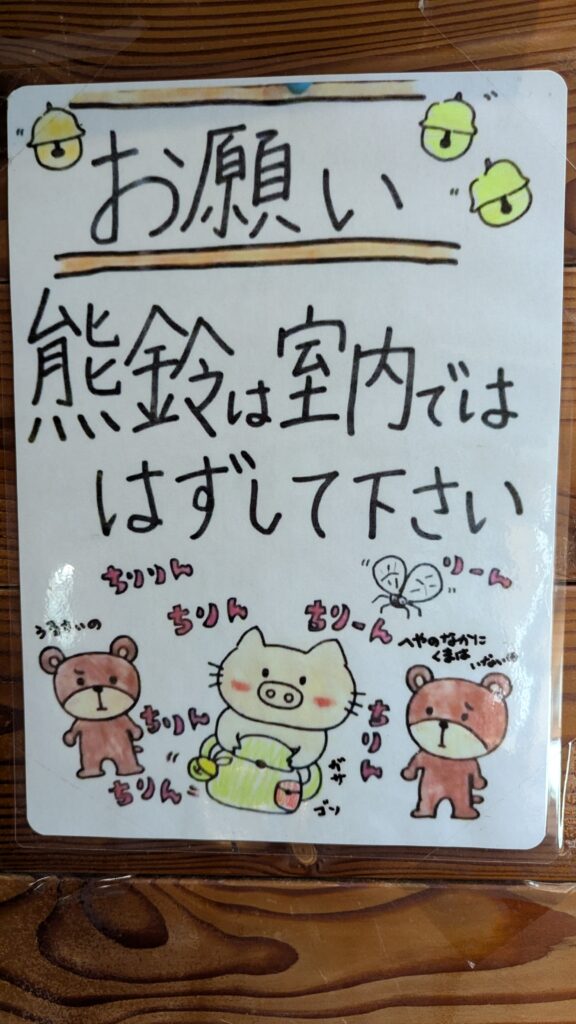 お願い
熊鈴は室内では
はずして下さい
ちりりん
りーん
ちりん
ちりーん
うるさいの
へやのなかに
くまは
いない
ちりん
ちりん
ちりん
ガサ
ゴソ